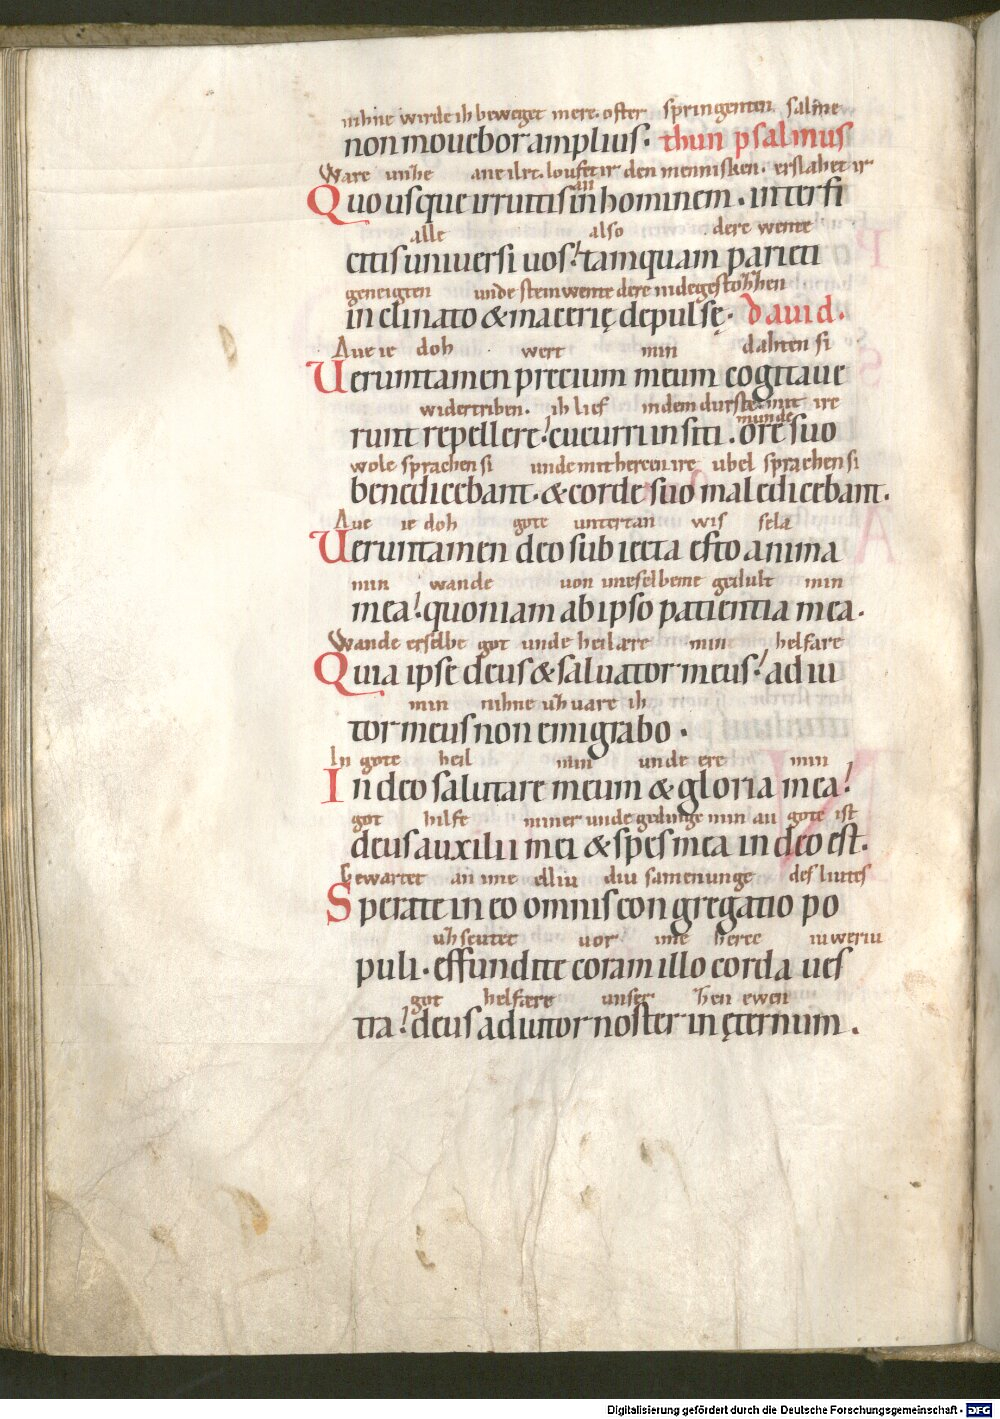 nihne wirde ih beweget mere. ofter springenten salme
non mouebor amplius. thun psalmus
Ware unhe ane ilet. loufet ir den mennisken. erslahet ir
Quo usque irruitis in hominem. interfi
an
alle also dere wente
citis uniuersi uos! tamquam parieti
geneigten unde steinwente dere nidegestozzen
inclinato & macerię depulsę. dauid.
Aue ie doh wert min dahten si
Ueruntamen precium meum cogitaue
widertriben. ih lief in dem durste mit ire
munde
runt repellere! cucurri in siti. ore suo
wole sprachen si unde mit hercen ire ubel sprachen si
benedicebant. & corde suo maledicebant.
Aue ie doh gote untertan wis sela
Ueruntamen deo subiecta esto anima
min wande uon imeselbeme gedult min
mea! quoniam ab ipso patientia mea.
Wande erselbe got unde heilare mine helfare
Quia ipse deus & saluator meus! adiu
min nihne uzuare ih
tor meus non emigrabo.
In gote heil min unde ere min
In deo salutare meum & gloria mea!
got hilfe miner unde gedinge min an gote ist
deus auxilii mei & spes mea in deo est.
Gewartet an ime elliu diu samenunge des liutes
Sperate in eo omnis congregatio po
uzscutet uor ime herce iuweriu
puli. effundite coram illo corda ues
got helfære unser zen ewen
tra! deus adiutor noster in ęternum.
Digitalisierung gefördert durch die Deutsche Forschungsgemeinschaft - DFG